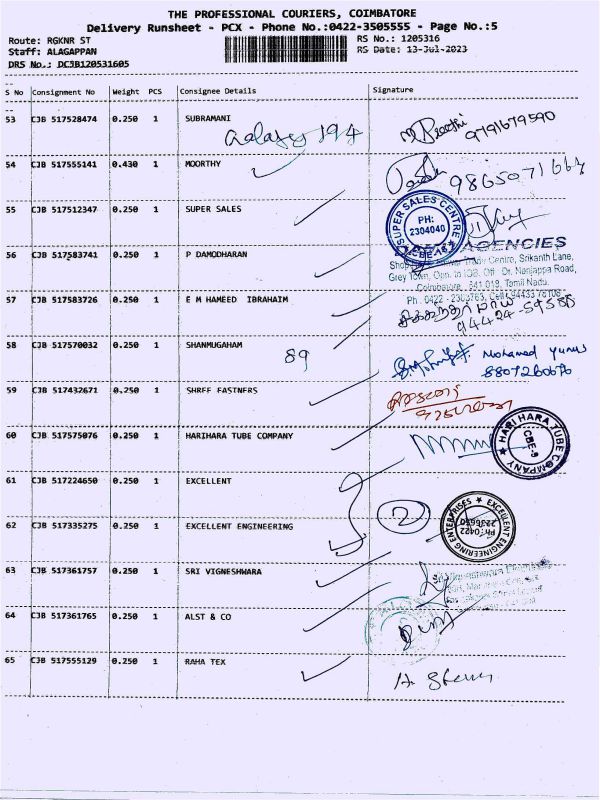 THE PROFESSIONAL COURIERS, COIMBATORE
Delivery Runsheet - PCX - Phone No.:0422-3505555 - Page No.:5
Route: RGKNR ST
RS No.: 1205316
Staff: ALAGAPPAN
RS Date: 13-Jul-2023
DRS No.: DCJB120531605
S No Consignment No Weight PCS Consignee Details Signature
53 CJB 517528474 0.250 1 SUBRAMANI
9791679590
54 CJB 517555141 0.430 1 MOORTHY
55 CJB 517512347 0.250 1 SUPER SALES
SUPER SALES CENTRE
PH:
2304040
CBE-18
56 CJB 517583741 0.250 1 P DAMODHARAN
AGENCIES
Centre, Srikanth Lane,
Grey Town, Opp. to IOB, Off : Dr. Nanjappa Road,
Coimbatore - 641 018, Tamil Nadu.
57 CJB 517583726 0.250 1 E M HAMEED IBRAHAIM
58 CJB 517570032 0.250 1 SHANMUGHAM
89
Mohamed Yunus
8807260676
59 CJB 517432671 0.250 1 SHREE FASTNERS
60 CJB 517575076 0.250 1 HARIHARA TUBE COMPANY
HARI HARA TUBE COMPANY
CBE-9
61 CJB 517224650 0.250 1 EXCELLENT
62 CJB 517335275 0.250 1 EXCELLENT ENGINEERING
2
EXCELLENT ENGINEERING ENTERPRISES
63 CJB 517361757 0.250 1 SRI VIGNESHWARA
64 CJB 517361765 0.250 1 ALST & CO
65 CJB 517555129 0.250 1 RAHA TEX